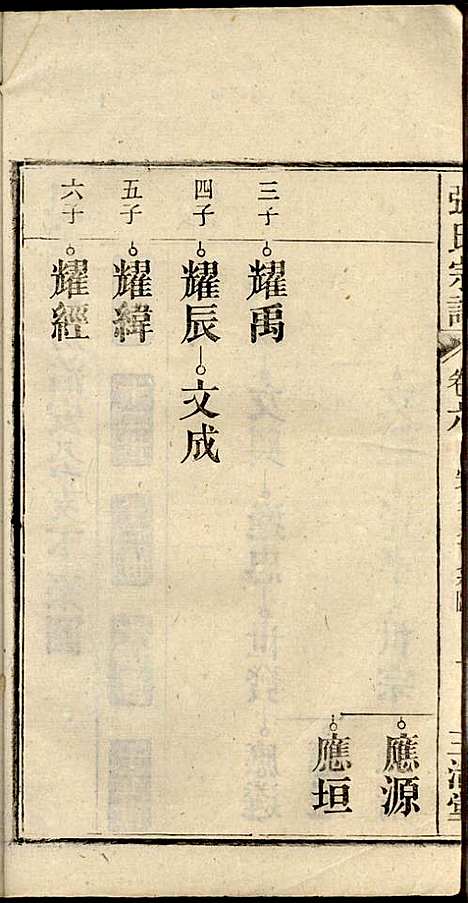 張氏宗譜
卷六
應源
應垣
三子
耀禹
四子
耀辰
文成
五子
耀緯
六子
耀經